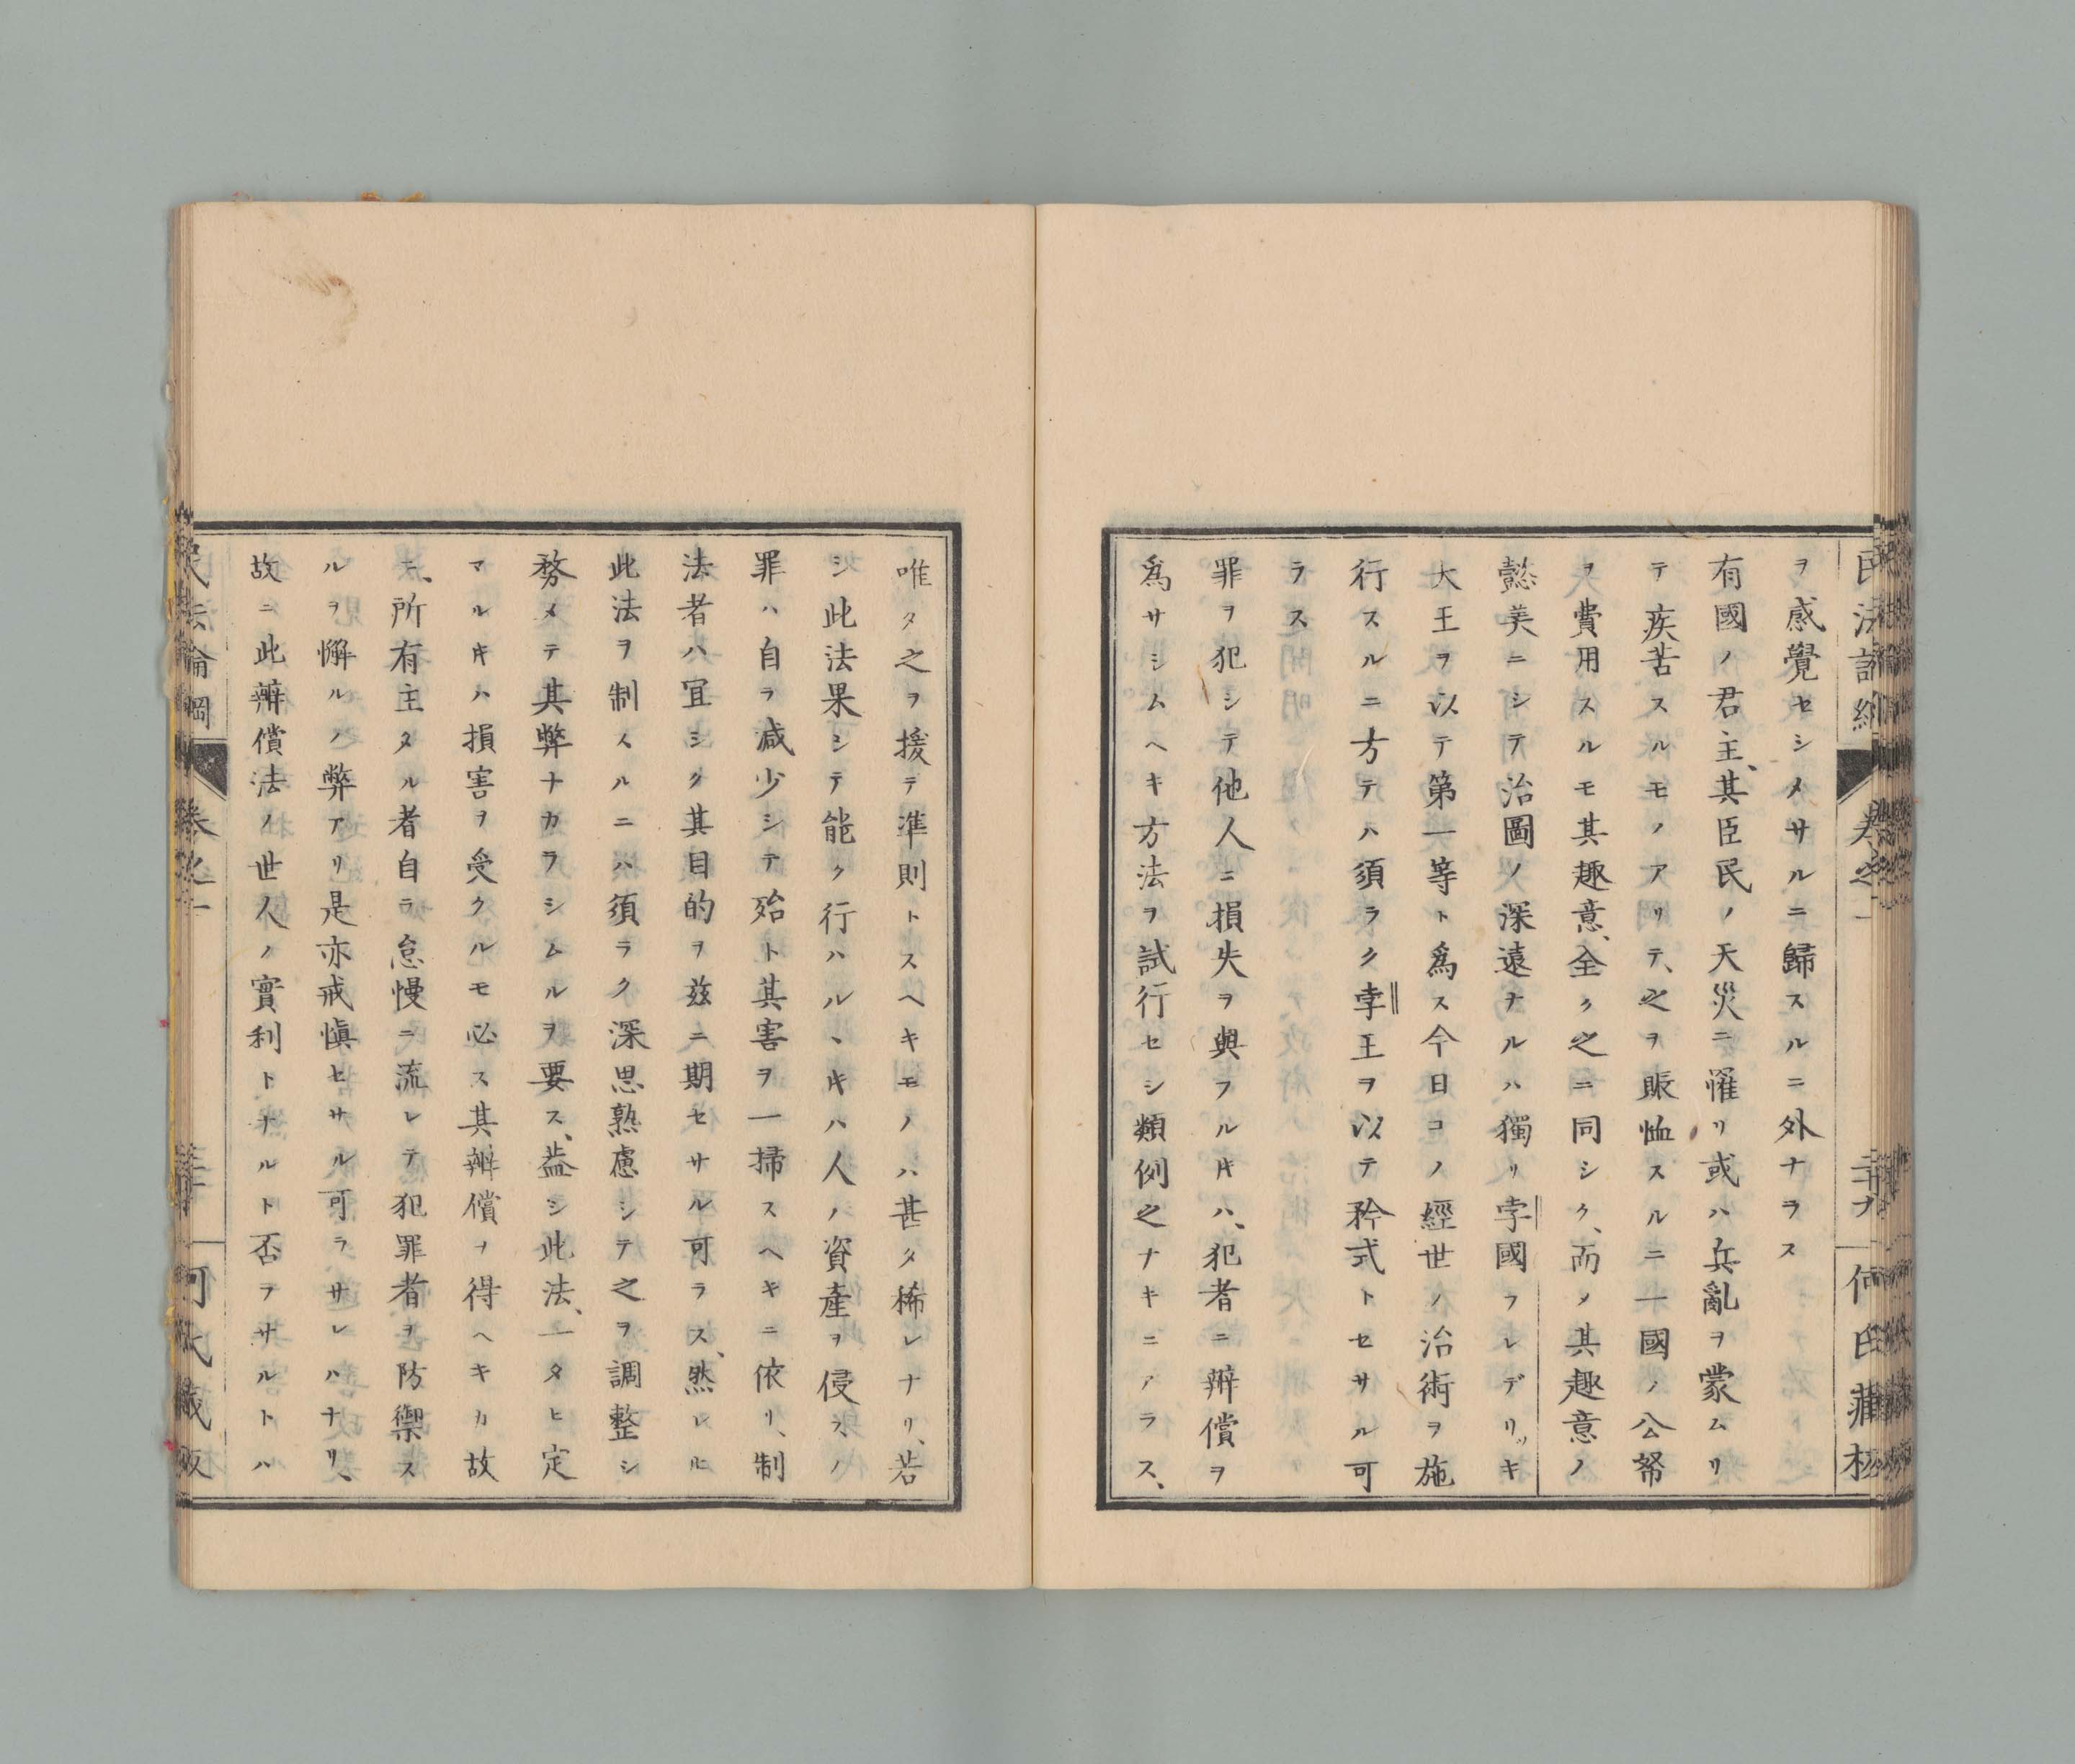 ヲ感覺セシメサルニ歸スルニ外ナラス
有國ノ君主、其臣民ノ天災ニ罹リ或ハ兵亂ヲ蒙ムリ
テ疾苦スルモノアリテ、之ヲ賑恤スルニ一國ノ公帑
ヲ費用スルモ其趣意、全ク之ニ同シク、而メ其趣意ノ
懿美ニシテ治圖ノ深遠ナルハ獨リ孛國フレデリッキ
大王ヲ以テ第一等ト爲ス今日コノ經世ノ治術ヲ施
行スルニ方テハ須ラク孛王ヲ以テ矜式トセサル可
ラス
罪ヲ犯シテ他人ニ損失ヲ與フルキハ、犯者ニ辨償ヲ
爲サシムヘキ方法ヲ試行セシ類例之ナキニアラス、
唯タ之ヲ援テ準則トスヘキモノハ甚タ稀レナリ、若
シ此法果シテ能ク行ハルヽキハ人ノ資產ヲ侵スノ
罪ハ自ラ減少シテ殆ト其害ヲ一掃スヘキニ依リ、制
法者ハ宜シク其目的ヲ玆ニ期セサル可ラス、然レヒ
此法ヲ制スルニハ須ラク深思熟慮シテ之ヲ調整シ
務メテ其弊ナカラシムルヲ要ス、葢シ此法、一タヒ定
マルキハ損害ヲ受クルモ必ス其辨償ヲ得ヘキカ故
ニ、所有主タル者自ラ怠慢ニ流レテ犯罪者ヲ防禦ス
ルヲ懈ルノ弊アリ是亦戒愼セサル可ラサレハナリ、
故ニ此辨償法ノ世人ノ實利トナルト否ヲサルトハ
民法論綱 卷之一 何氏藏版